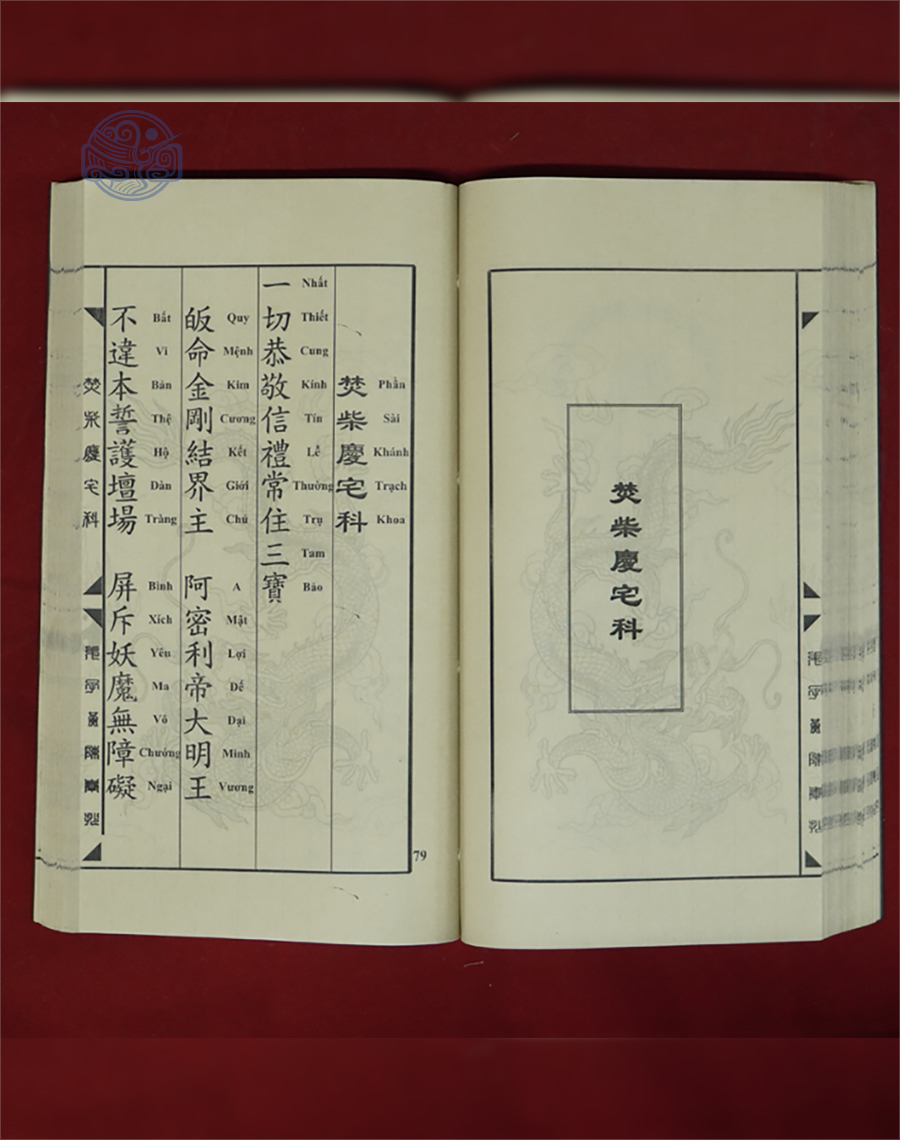 焚柴慶宅科
Phần Sài Khánh Trạch Khoa
焚柴慶宅科
Nhất Thiết Cung Kính Tín Lễ Thường Trụ Tam Bảo
一切恭敬信禮常住三寶
Quy Mệnh Kim Cương Kết Giới Chủ A Mật Lợi Đế Đại Minh Vương
皈命金剛結界主 阿密利帝大明王
Bất Vi Bản Thệ Hộ Đàn Tràng Bình Xích Yêu Ma Vô Chướng Ngại
不違本誓護壇場 屏斥妖魔無障礙
焚柴慶宅科
79